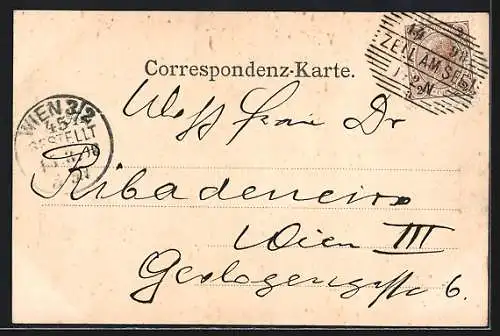 ZELL AM SEE
Correspondenz-Karte.
WIEN 3/2
BESTELLT
Frau Dr
Ribadeneira
Wien III
Geologengasse 6.